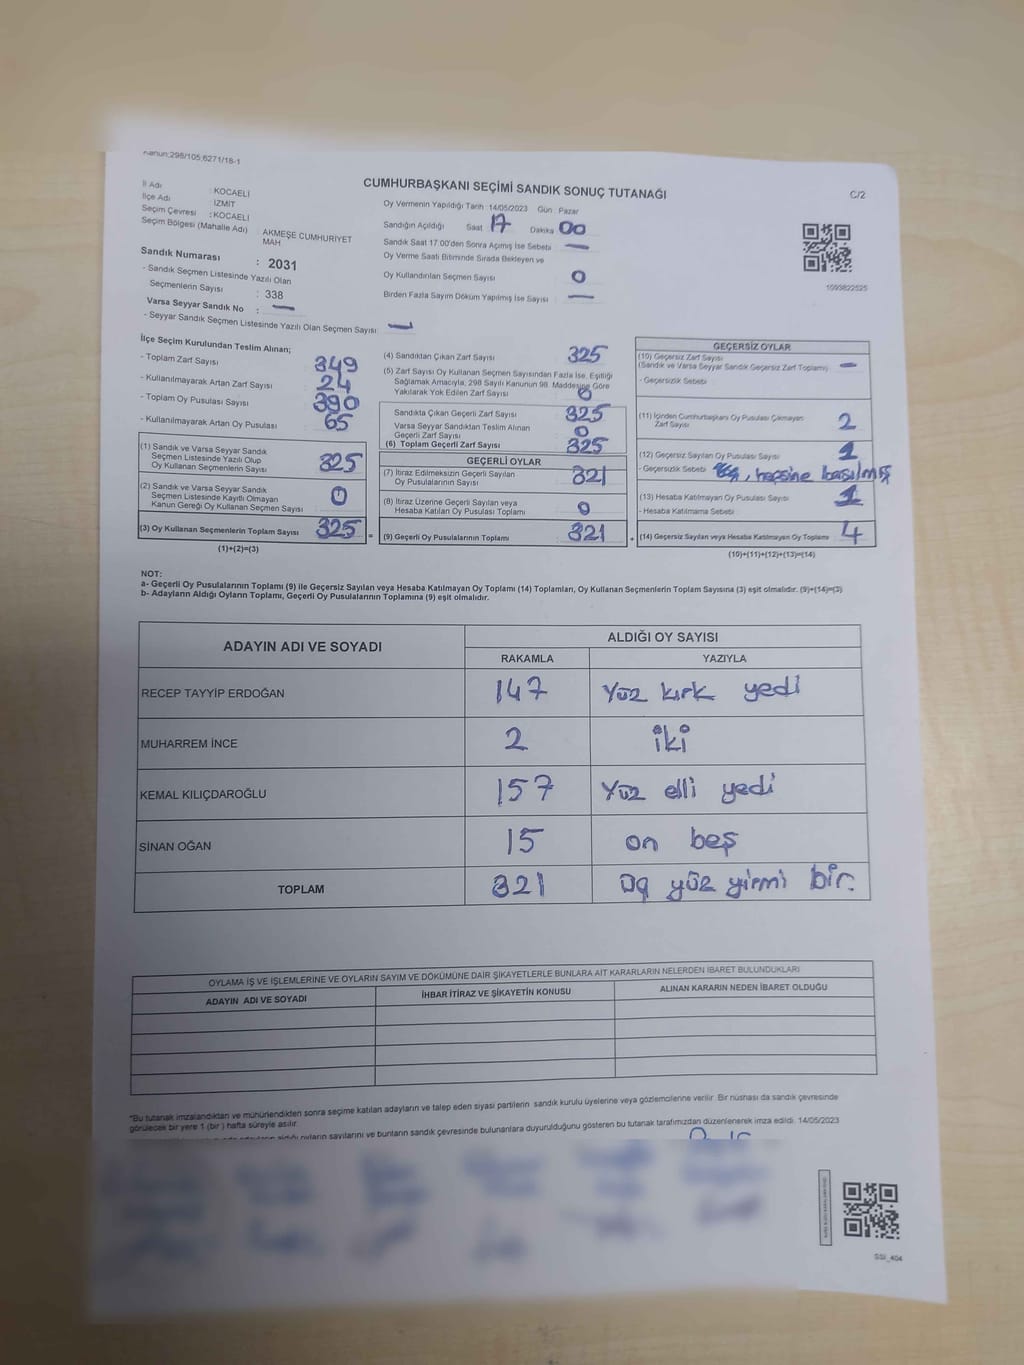 Kanun:298/105;6271/18-1
CUMHURBAŞKANI SEÇİMİ SANDIK SONUÇ TUTANAĞI
C/2
İl Adı : KOCAELİ
İlçe Adı : İZMİT
Seçim Çevresi : KOCAELİ
Seçim Bölgesi (Mahalle Adı) : AKMEŞE CUMHURİYET
MAH
Sandık Numarası : 2031
- Sandık Seçmen Listesinde Yazılı Olan
Seçmenlerin Sayısı : 338
Varsa Seyyar Sandık No : —
- Seyyar Sandık Seçmen Listesinde Yazılı Olan Seçmen Sayısı: —
Oy Vermenin Yapıldığı Tarih : 14/05/2023 Gün : Pazar
Sandığın Açıldığı Saat 17 Dakika 00
Sandık Saat 17.00'den Sonra Açılmış İse Sebebi —
Oy Verme Saati Bitiminde Sırada Bekleyen ve
Oy Kullandırılan Seçmen Sayısı 0
Birden Fazla Sayım Döküm Yapılmış İse Sayısı : —
1099822525
İlçe Seçim Kurulundan Teslim Alınan;
- Toplam Zarf Sayısı 349
- Kullanılmayarak Artan Zarf Sayısı 24
- Toplam Oy Pusulası Sayısı 390
- Kullanılmayarak Artan Oy Pusulası 65
(1) Sandık ve Varsa Seyyar Sandık
Seçmen Listesinde Yazılı Olup
Oy Kullanan Seçmenlerin Sayısı 325
(2) Sandık ve Varsa Seyyar Sandık
Seçmen Listesinde Kayıtlı Olmayan
Kanun Gereği Oy Kullanan Seçmen Sayısı 0
(3) Oy Kullanan Seçmenlerin Toplam Sayısı 325 =
(1)+(2)=(3)
(4) Sandıktan Çıkan Zarf Sayısı 325
(5) Zarf Sayısı Oy Kullanan Seçmen Sayısından Fazla İse, Eşitliği
Sağlamak Amacıyla, 298 Sayılı Kanunun 98. Maddesine Göre
Yakılarak Yok Edilen Zarf Sayısı 0
Sandıkta Çıkan Geçerli Zarf Sayısı 325
Varsa Seyyar Sandıktan Teslim Alınan
Geçerli Zarf Sayısı 0
(6) Toplam Geçerli Zarf Sayısı 325
GEÇERLİ OYLAR
(7) İtiraz Edilmeksizin Geçerli Sayılan
Oy Pusulalarının Sayısı 321
(8) İtiraz Üzerine Geçerli Sayılan veya
Hesaba Katılan Oy Pusulası Toplamı 0
(9) Geçerli Oy Pusulalarının Toplamı 321 +
GEÇERSİZ OYLAR
(10) Geçersiz Zarf Sayısı
(Sandık ve Varsa Seyyar Sandık Geçersiz Zarf Toplamı) —
- Geçersizlik Sebebi
(11) İçinden Cumhurbaşkanı Oy Pusulası Çıkmayan
Zarf Sayısı 2
(12) Geçersiz Sayılan Oy Pusulası Sayısı 1
- Geçersizlik Sebebi , hepsine basılmış
(13) Hesaba Katılmayan Oy Pusulası Sayısı 1
- Hesaba Katılmama Sebebi
(14) Geçersiz Sayılan veya Hesaba Katılmayan Oy Toplamı 4
(10)+(11)+(12)+(13)=(14)
NOT:
a- Geçerli Oy Pusulalarının Toplamı (9) ile Geçersiz Sayılan veya Hesaba Katılmayan Oy Toplamı (14) Toplamları, Oy Kullanan Seçmenlerin Toplam Sayısına (3) eşit olmalıdır. (9)+(14)=(3)
b- Adayların Aldığı Oyların Toplamı, Geçerli Oy Pusulalarının Toplamına (9) eşit olmalıdır.
ADAYIN ADI VE SOYADI ALDIĞI OY SAYISI
RAKAMLA YAZIYLA
RECEP TAYYİP ERDOĞAN 147 Yüz kırk yedi
MUHARREM İNCE 2 iki
KEMAL KILIÇDAROĞLU 157 Yüz elli yedi
SİNAN OĞAN 15 on beş
TOPLAM 321 üç yüz yirmi bir.
OYLAMA İŞ VE İŞLEMLERİNE VE OYLARIN SAYIM VE DÖKÜMÜNE DAİR ŞİKAYETLERLE BUNLARA AİT KARARLARIN NELERDEN İBARET BULUNDUKLARI
ADAYIN ADI VE SOYADI İHBAR İTİRAZ VE ŞİKAYETİN KONUSU ALINAN KARARIN NEDEN İBARET OLDUĞU
*Bu tutanak imzalandıktan ve mühürlendikten sonra seçime katılan adayların ve talep eden siyasi partilerin sandık kurulu üyelerine veya gözlemcilerine verilir. Bir nüshası da sandık çevresinde
görülecek bir yere 1 (bir) hafta süreyle asılır.
aldığı oyların sayılarını ve bunların sandık çevresinde bulunanlara duyurulduğunu gösteren bu tutanak tarafımızdan düzenlenerek imza edildi. 14/05/2023
SSI_404